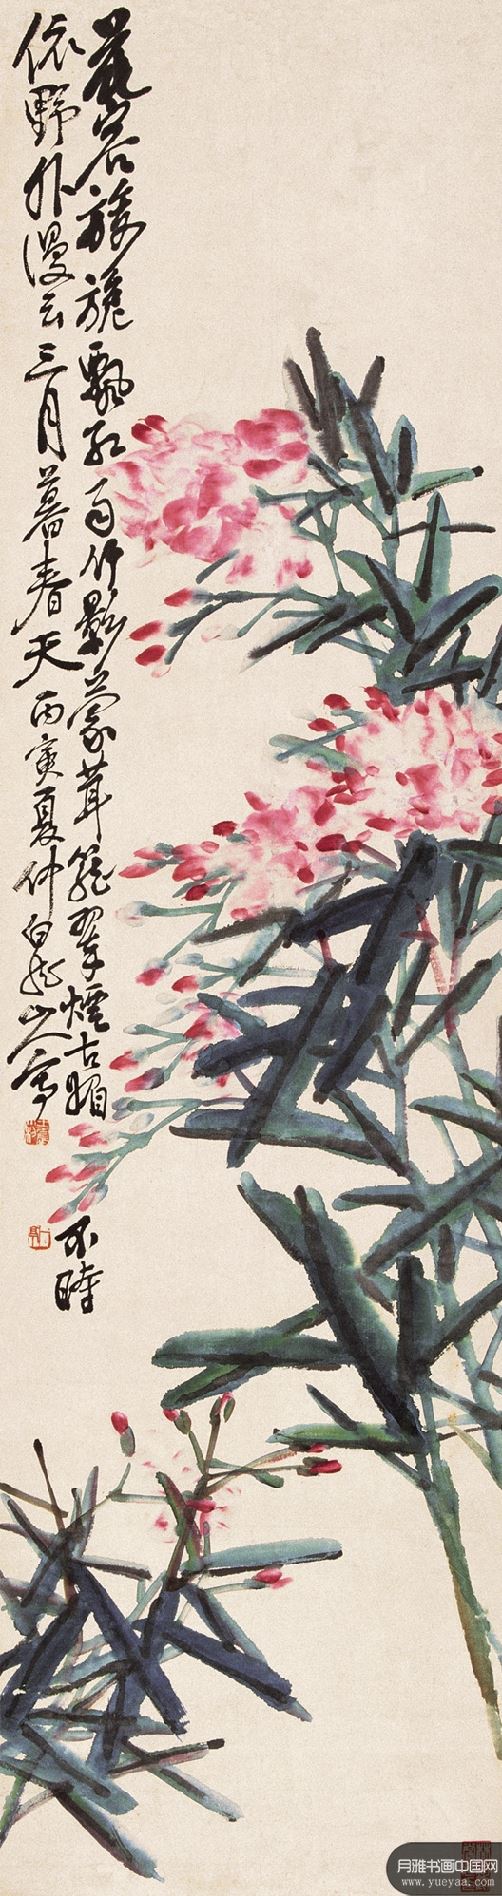 花容旖旎飄紅雨竹影蒙茸籠翠煙古
不時
依野外漫云三月暮春天丙寅夏仲白龍山人寫
月雅书画中国网
www.yueyaa.com